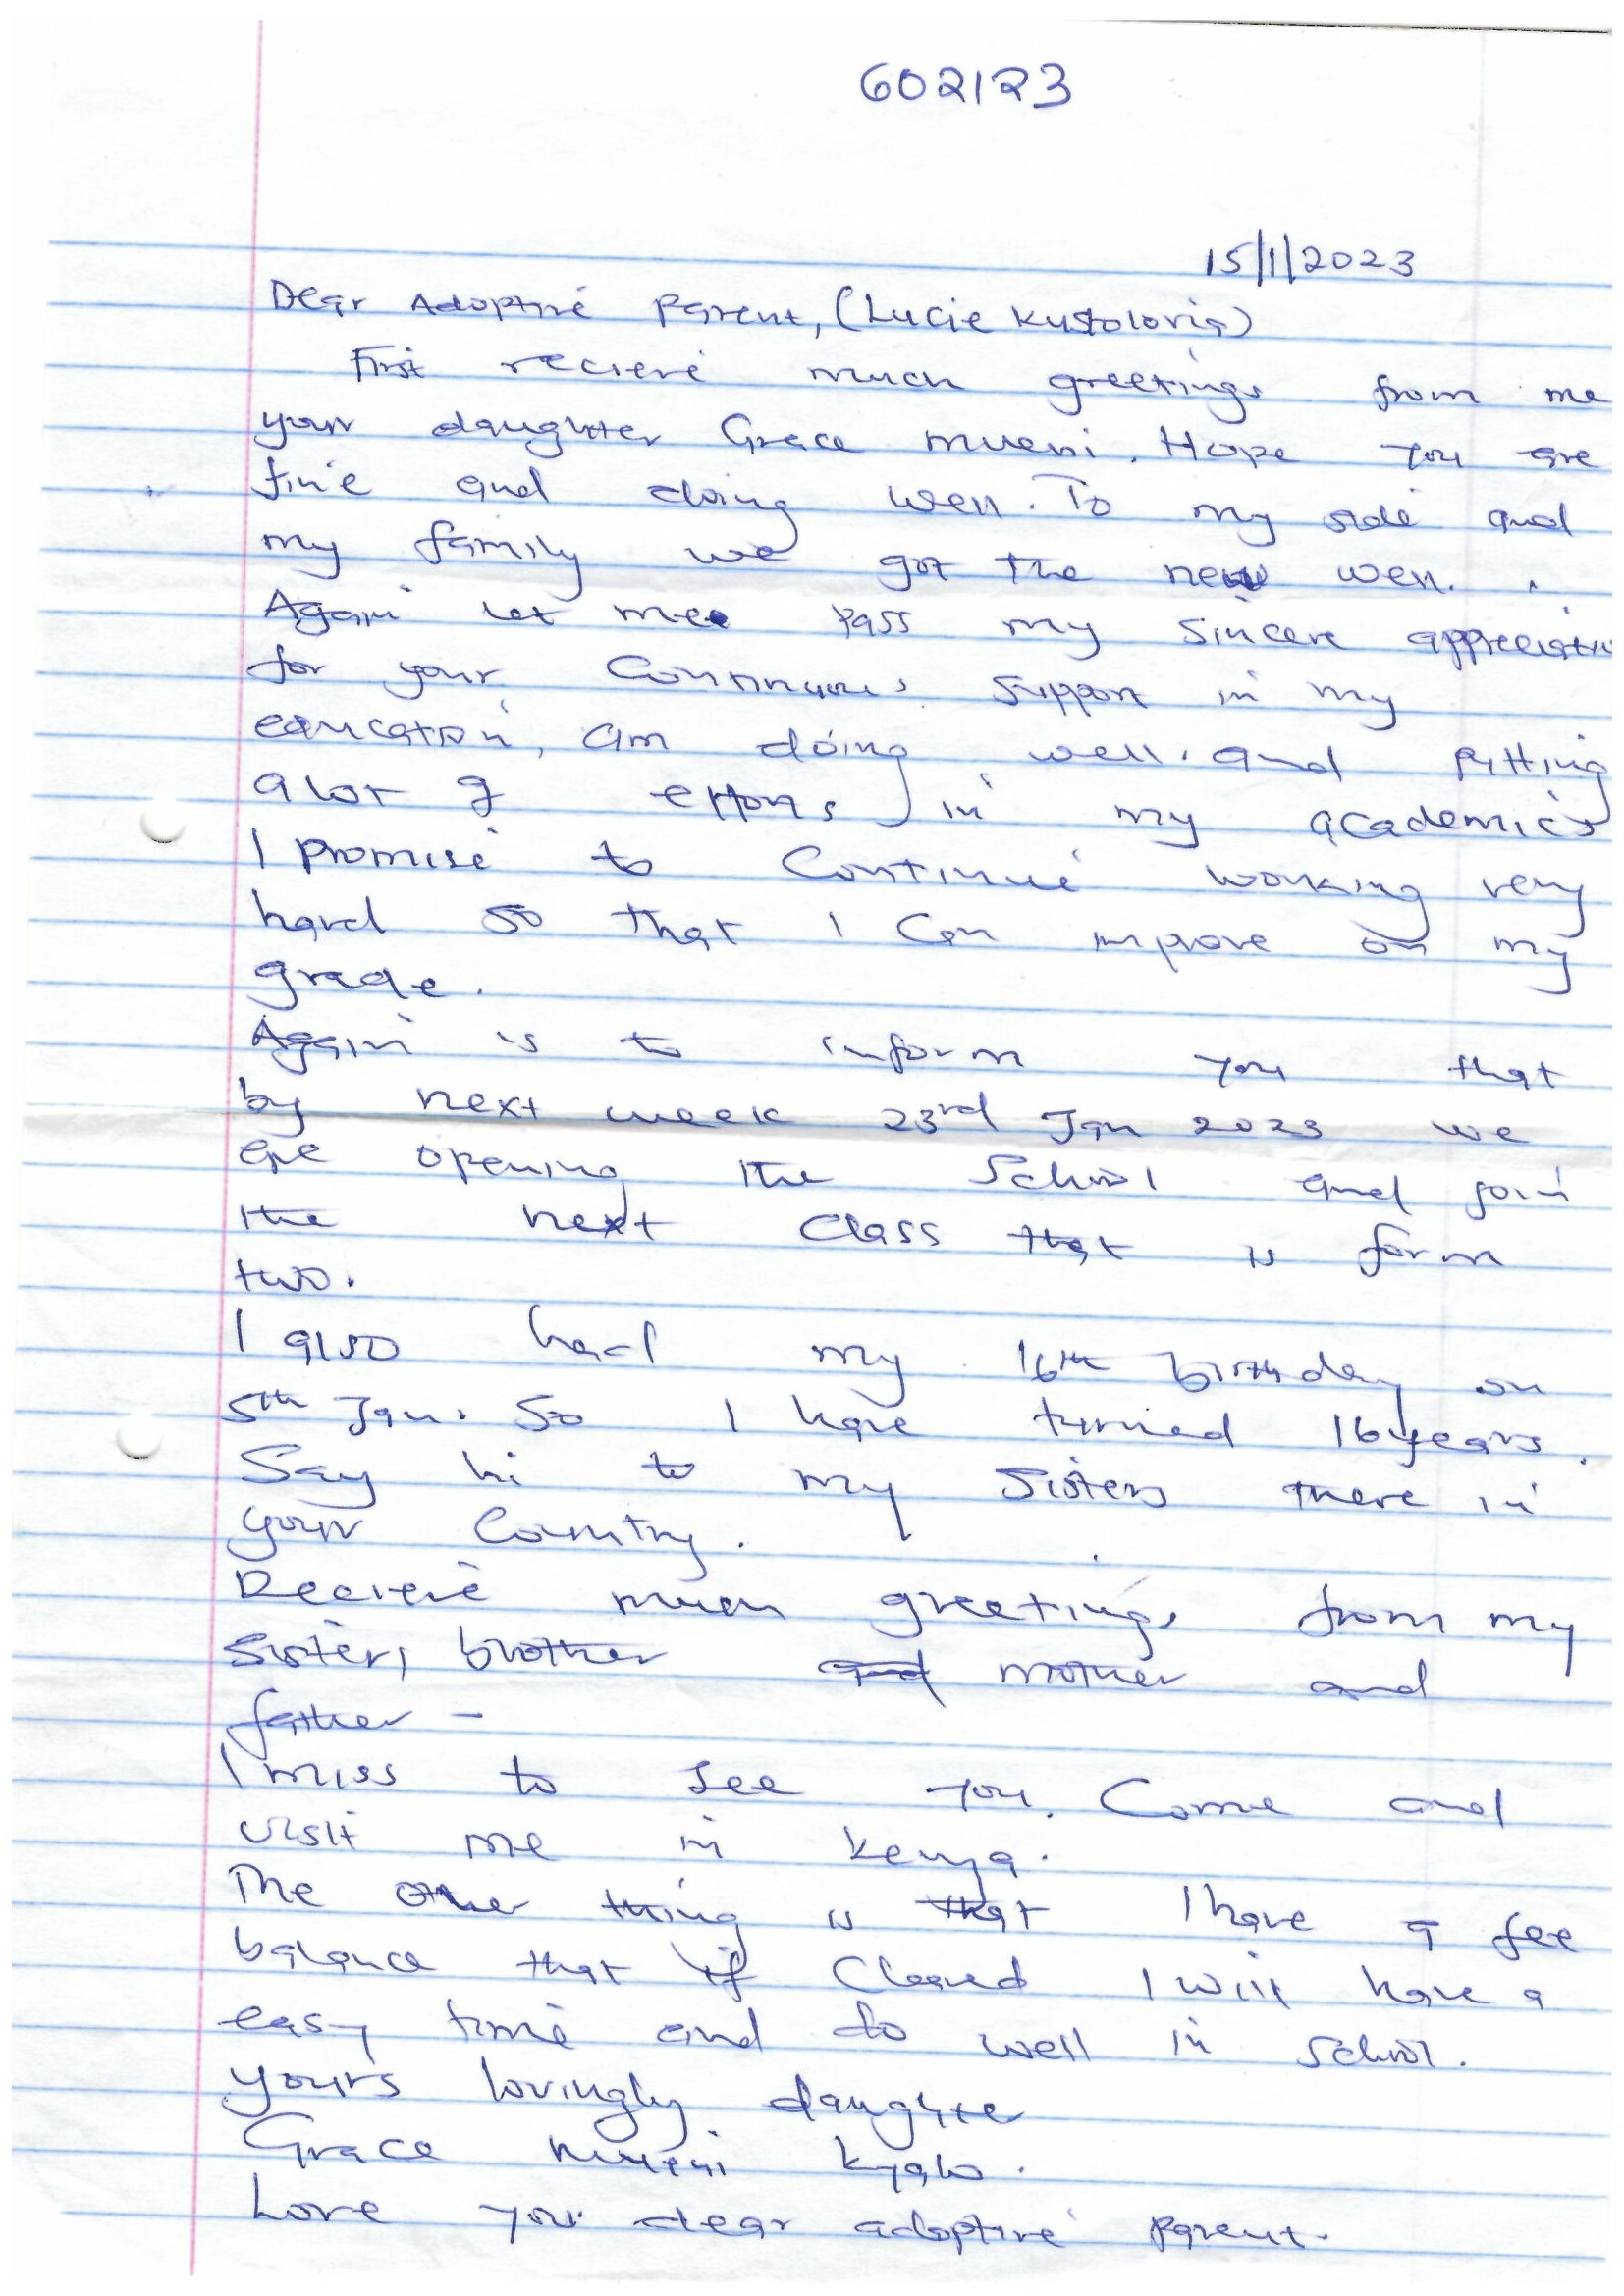 602123
15/1/2023
Dear Adoptive parent, (Lucie Kustolovia)
First recieve much greetings from me
your daughter Grace Mueni. Hope you are
fine and doing well. To my side and
my family we got the new well.
Again let me pass my sincere appreciatio
for your continuous support in my
education, am doing well and putting
a lot of efforts in my academics
I promise to continue working very
hard so that I can improve on my
grade.
Again is to inform you that
by next week 23rd Jan 2023 we
are opening the school and join
the next class that is form
two.
I also had my 16th birthday on
5th Jan. So I have turned 16 years.
Say hi to my sisters there in
your country.
Recieve much greetings from my
sister, brother and mother and
father -
I miss to see you. Come and
visit me in Kenya.
The other thing is that I have a fee
balance that if cleared I will have a
easy time and do well in school.
Yours lovingly daughter
Grace Mueni Kyalo.
Love you dear adoptive parent.